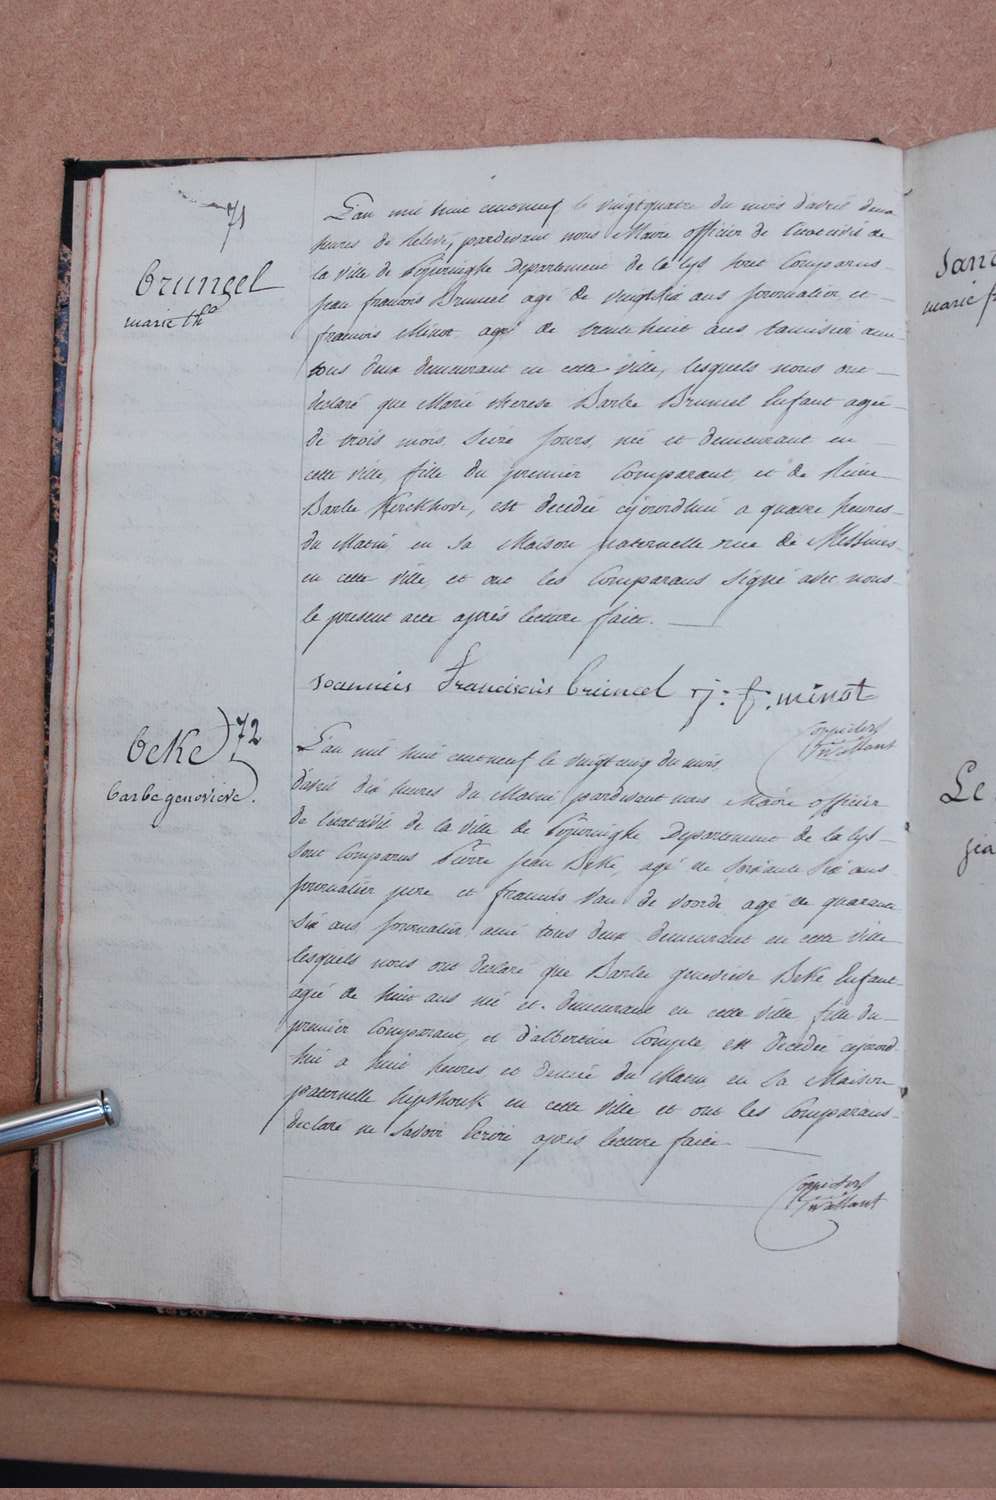 71
brungel
marie th.a
L'an mil huit cent neuf le vingtquatre du mois d'avril deux
heures de relevé, pardevant nous Maire officier de l'etatcivil de
la ville de Poperinghe Departement de la Lys sont Comparus
jean francois Bruneel agé de vingtsix ans journalier et
francois Minot agé de trente huit ans tamisier ami
tous deux demeurant en cette ville, lesquels nous ont
declaré que Marie therese Barbe Bruneel Enfant agée
de trois mois, seize jours, née et demeurant en
cette ville, fille du premier Comparant, et de Reine
Barbe Kerckhove, est decedée cejourdhui a quatre heures
du Matin, en sa Maison paternelle rue de Messines
en cette ville, et ont les Comparans signé avec nous
le present acte après lecture faite.
Joannes Franciscus bruneel j: f: minot
72
beke
barbe genovieve.
L'an mil huit cent neuf le vingtcinq du mois
d'avril dix heures du Matin pardevant nous Maire officier
de l'etatcivil de la ville de Poperinghe Departement de la Lys
sont Comparus Pierre jean Beke, agé de soixante six ans
journalier pere et francois Van de voorde agé de quarante
six ans journalier ami tous deux demeurant en cette ville
lesquels nous ont declaré que Barbe genevieve Beke Enfant
agée de huit ans née et demeurant en cette ville fille du
premier Comparant, et d'albertine Compte est decedée cejourd
hui a huit heures et demie du Matin en sa Maison
paternelle en cette ville et ont les Comparans
declaré ne savoir Ecrire après lecture faite
sant
marie f
Le
jea